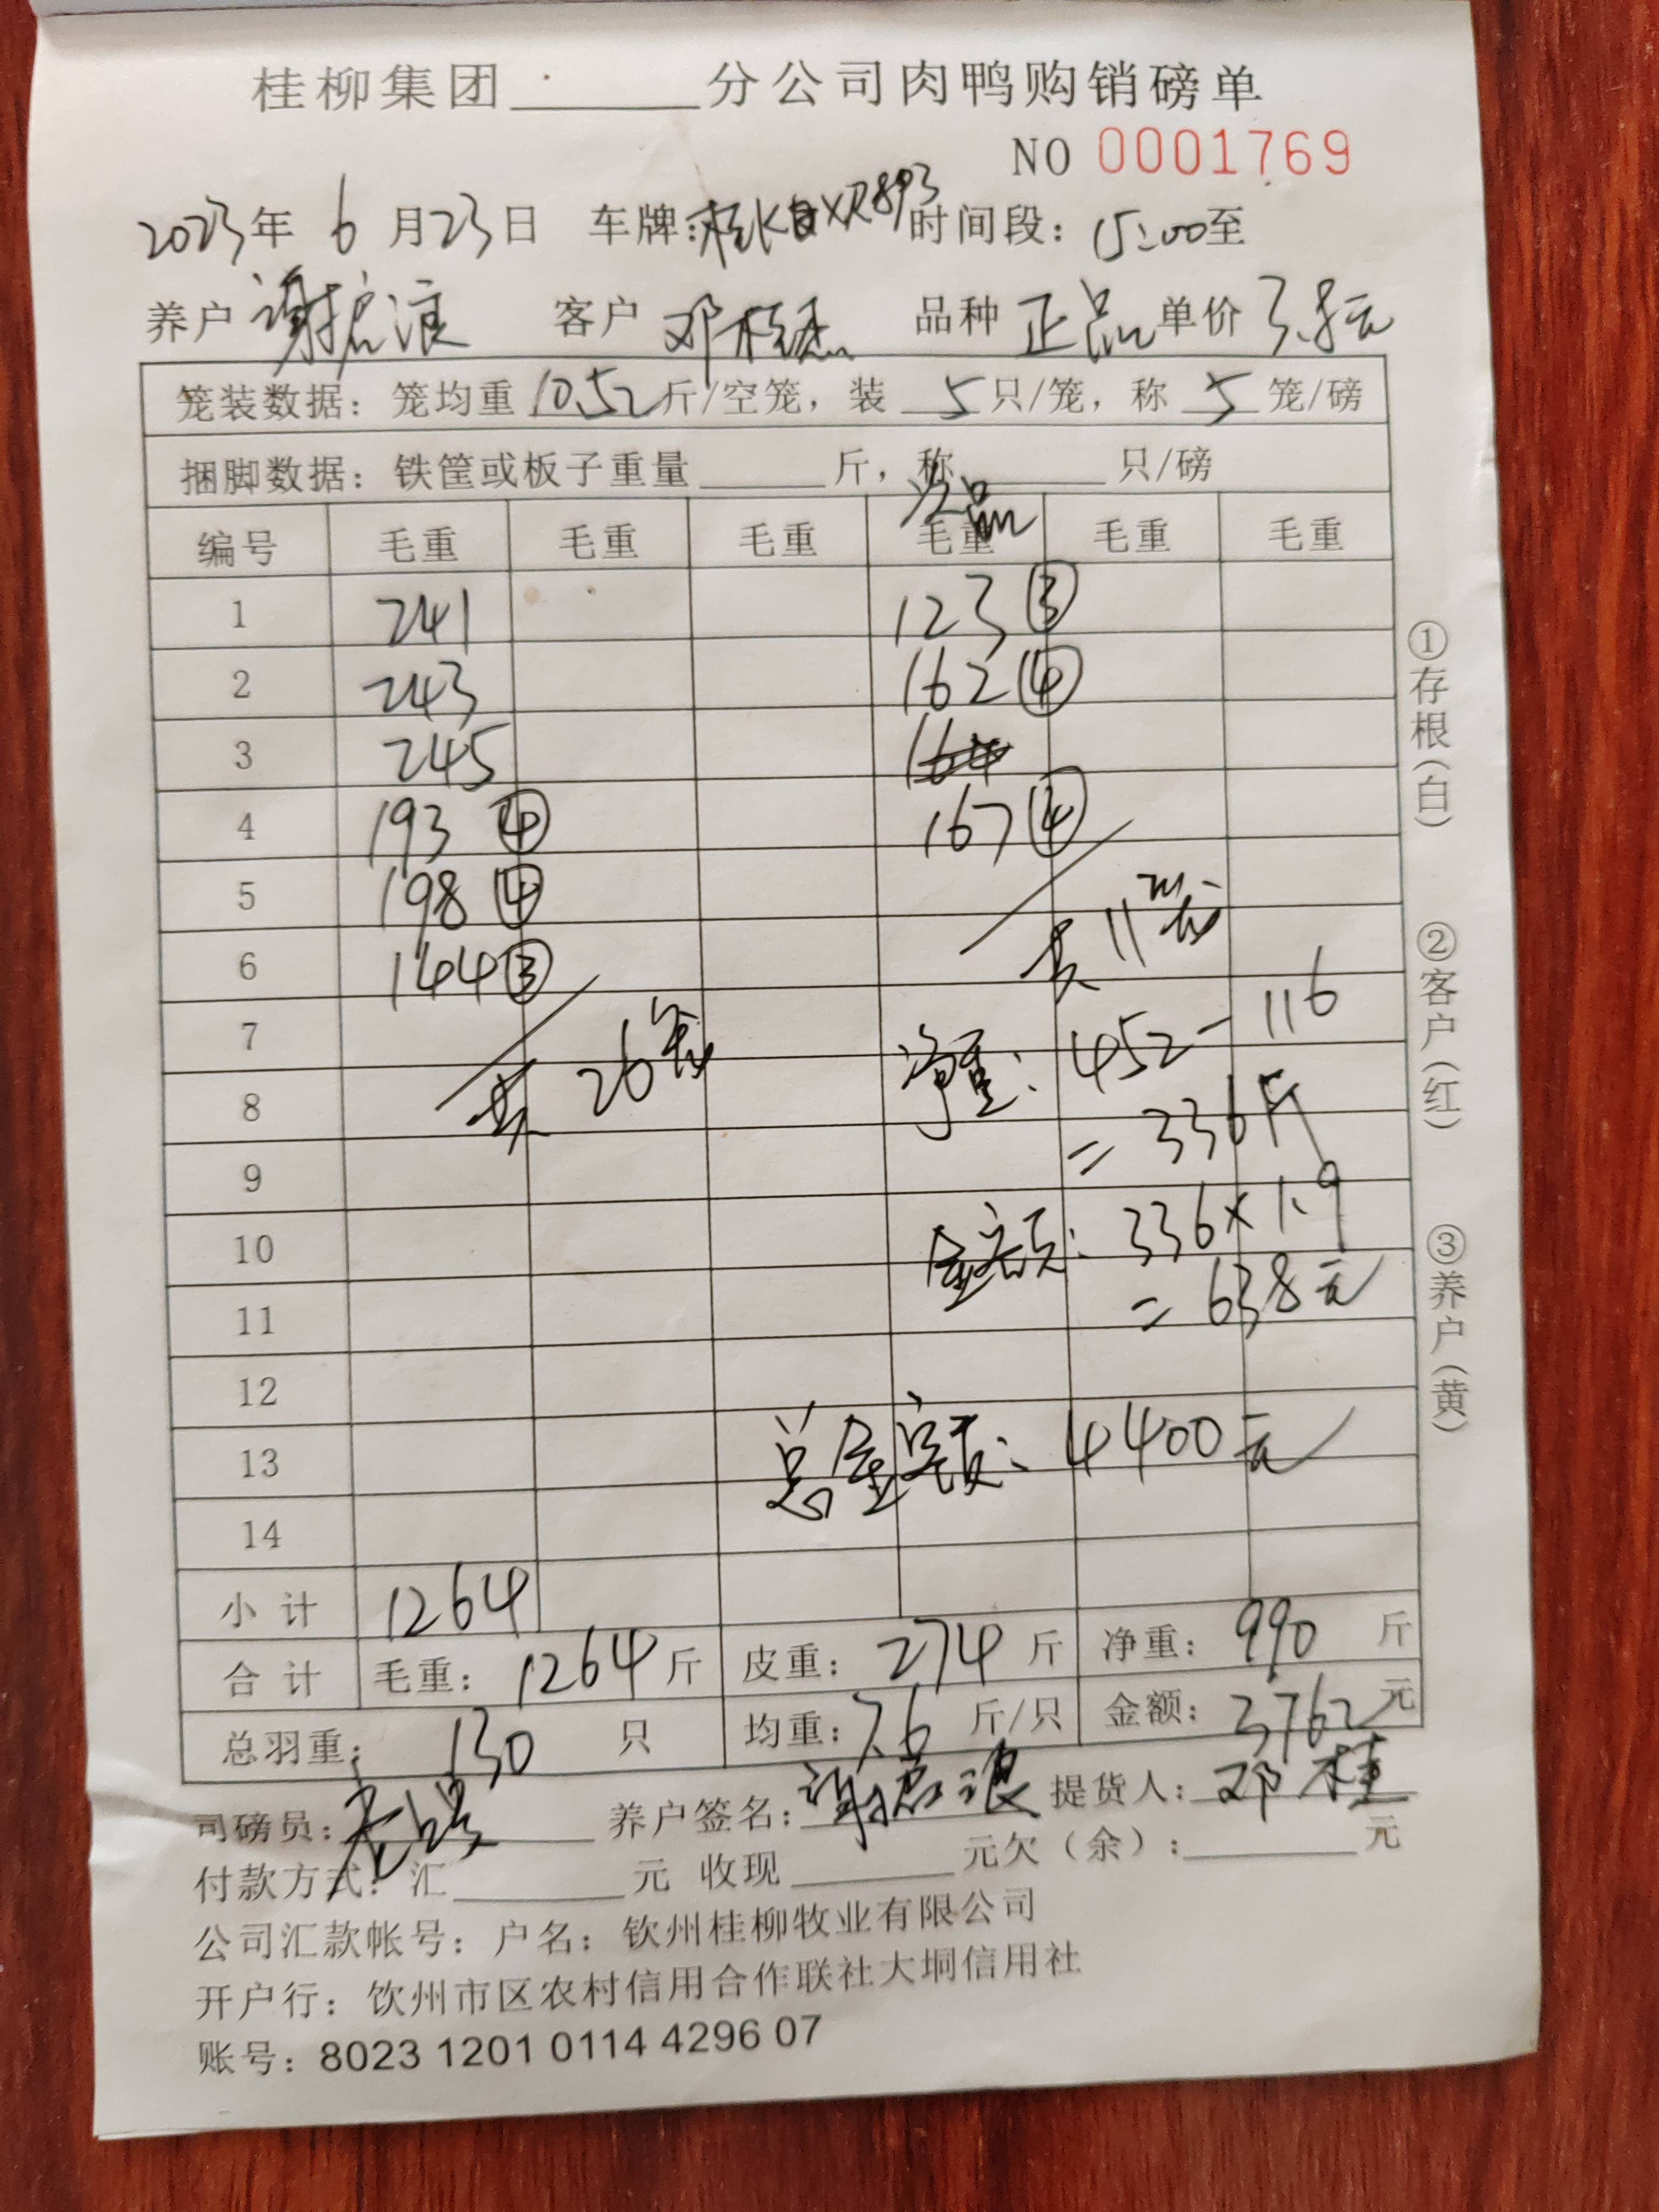 桂柳集团______分公司肉鸭购销磅单
NO 0001769
2023年 6月23日 车牌: XR893 时间段: 15:00至
养户 谢 浪 客户 邓桂 品种 正品 单价 3.8元
笼装数据: 笼均重 10.52 斤/空笼, 装 5 只/笼, 称 5 笼/磅
捆脚数据: 铁筐或板子重量______斤, 称______只/磅
次品
编号 毛重 毛重 毛重 毛重 毛重 毛重
1 241 123 ③
2 243 162 ④
3 245 164
4 193 ④ 167 ④
5 198 ④
共 11笼
6 144 ③
7 共 26笼 净重: 452-116
8 =336斤
9
10 金额: 336×1.9
11 =638元
12
13 总金额: 4400元
14
小计 1264
合计 毛重: 1264斤 皮重: 274 斤 净重: 990 斤
总羽重: 130 只 均重: 7.6 斤/只 金额: 3762元
司磅员: 养户签名: 谢 浪 提货人: 邓桂
付款方式: 汇______元 收现______元欠(余):______元
公司汇款帐号: 户名: 钦州桂柳牧业有限公司
开户行: 饮州市区农村信用合作联社大垌信用社
账号: 8023 1201 0114 4296 07
①存根(白)
②客户(红)
③养户(黄)